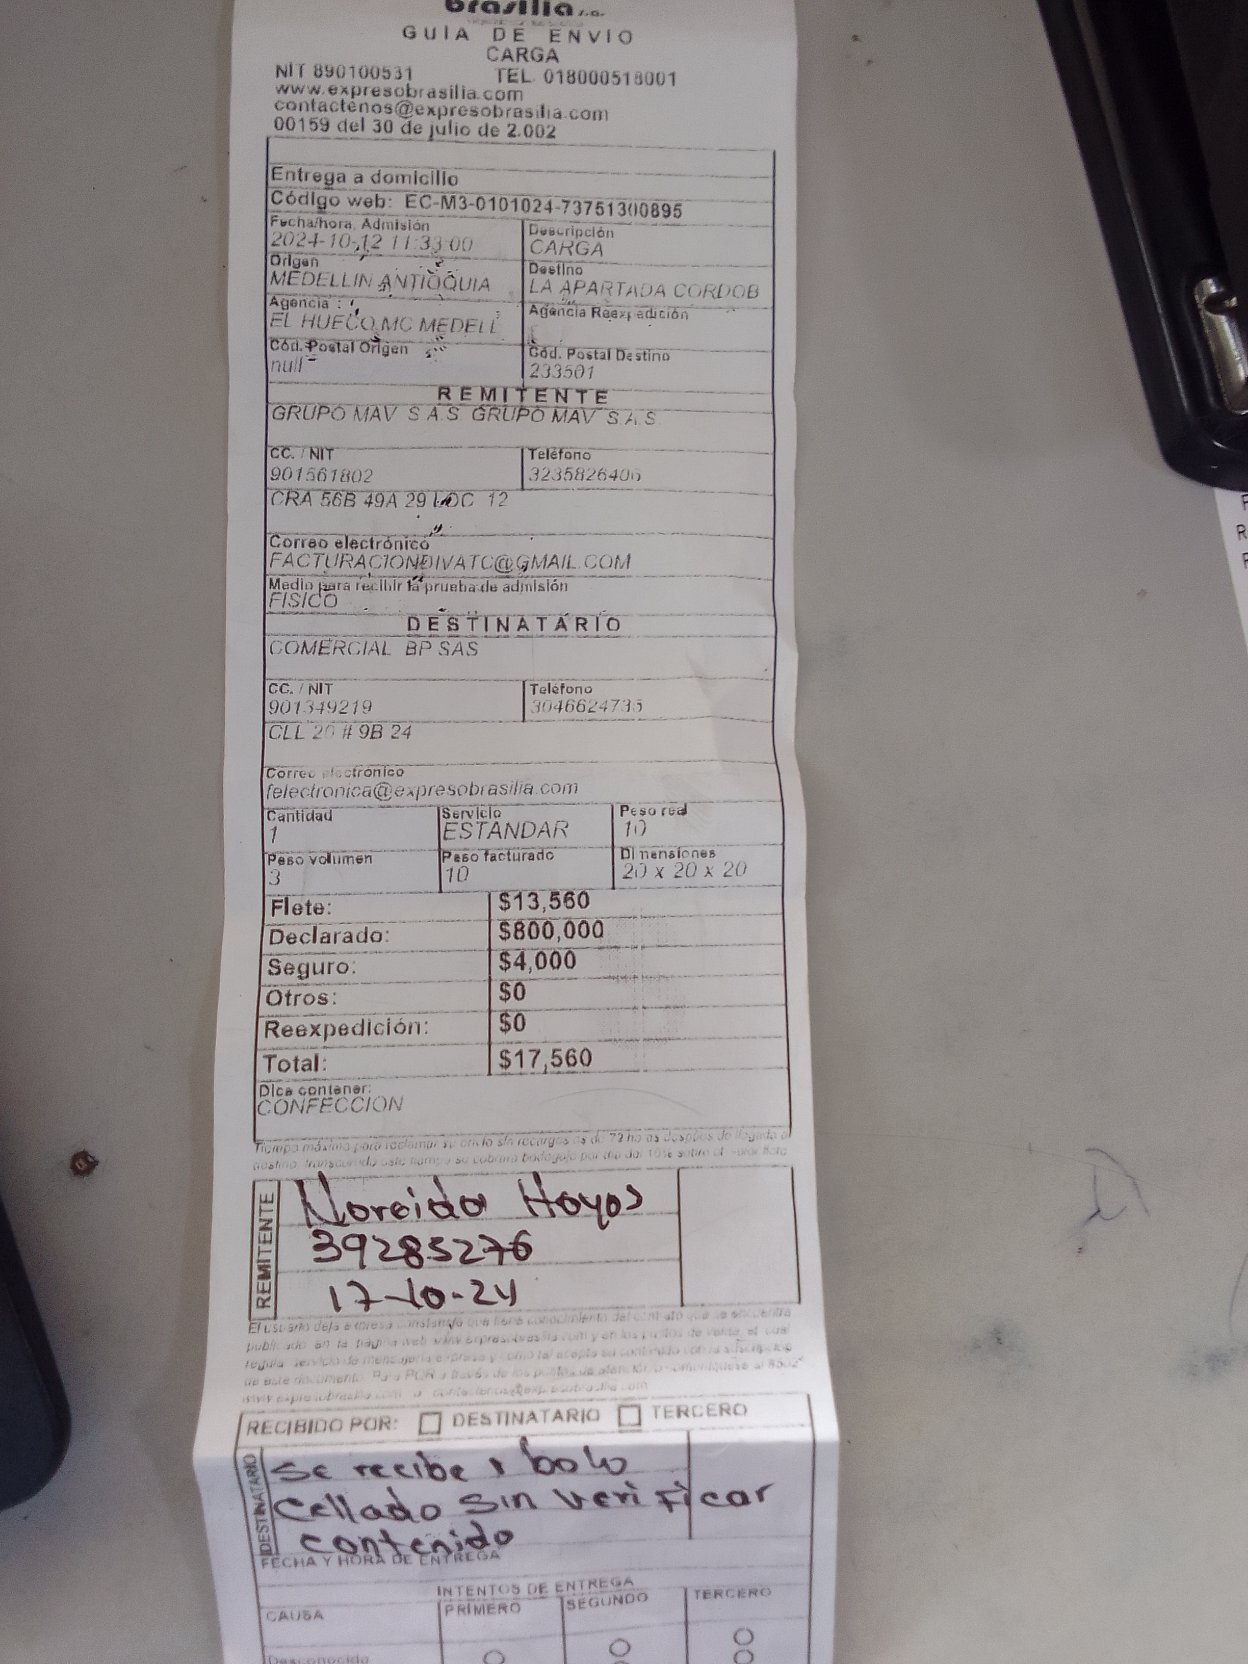 brasilia s.a.
GUIA DE ENVIO
CARGA
NIT 890100531 TEL. 018000518001
www.expresobrasilia.com
contactenos@expresobrasilia.com
00159 del 30 de julio de 2.002
Entrega a domicilio
Código web: EC-M3-0101024-73751300895
Fecha/hora. Admisión Descripción
2024-10-12 11:33:00 CARGA
Origen Destino
MEDELLIN ANTIOQUIA LA APARTADA CORDOB
Agencia : Agencia Reexpedición
EL HUECO MC MEDELL
Cód. Postal Origen Cód. Postal Destino
null 233501
REMITENTE
GRUPO MAV S.A.S GRUPO MAV S.A.S.
CC. / NIT Teléfono
901561802 3235826406
CRA 56B 49A 29 LOC 12
Correo electrónico
FACTURACIONDIVATC@GMAIL.COM
Medio para recibir la prueba de admisión
FISICO
DESTINATARIO
COMERCIAL BP SAS
CC. / NIT Teléfono
901349219 3046624735
CLL 20 # 9B 24
Correo electrónico
felectronica@expresobrasilia.com
Cantidad Servicio Peso real
1 ESTANDAR 10
Peso volumen Peso facturado Dimensiones
3 10 20 x 20 x 20
Flete: $13,560
Declarado: $800,000
Seguro: $4,000
Otros: $0
Reexpedición: $0
Total: $17,560
Dice contener:
CONFECCION
Tiempo máximo para reclamar su envío sin recargos es de 72 horas después de llegada a
destino, transcurrido este tiempo se cobrará bodegaje por día del 10% sobre el valor flete
REMITENTE
Noreida Hoyos
39285276
17-10-24
El usuario deja expresa constancia que tiene conocimiento del contrato que se encuentra
publicado en la página web www.expresobrasilia.com y en los puntos de venta, el cual
regula
RECIBIDO POR: DESTINATARIO TERCERO
DESTINATARIO
Se recibe 1 bolo
Cellado sin verificar
contenido
FECHA Y HORA DE ENTREGA
INTENTOS DE ENTREGA
CAUSA PRIMERO SEGUNDO TERCERO
Desconocido